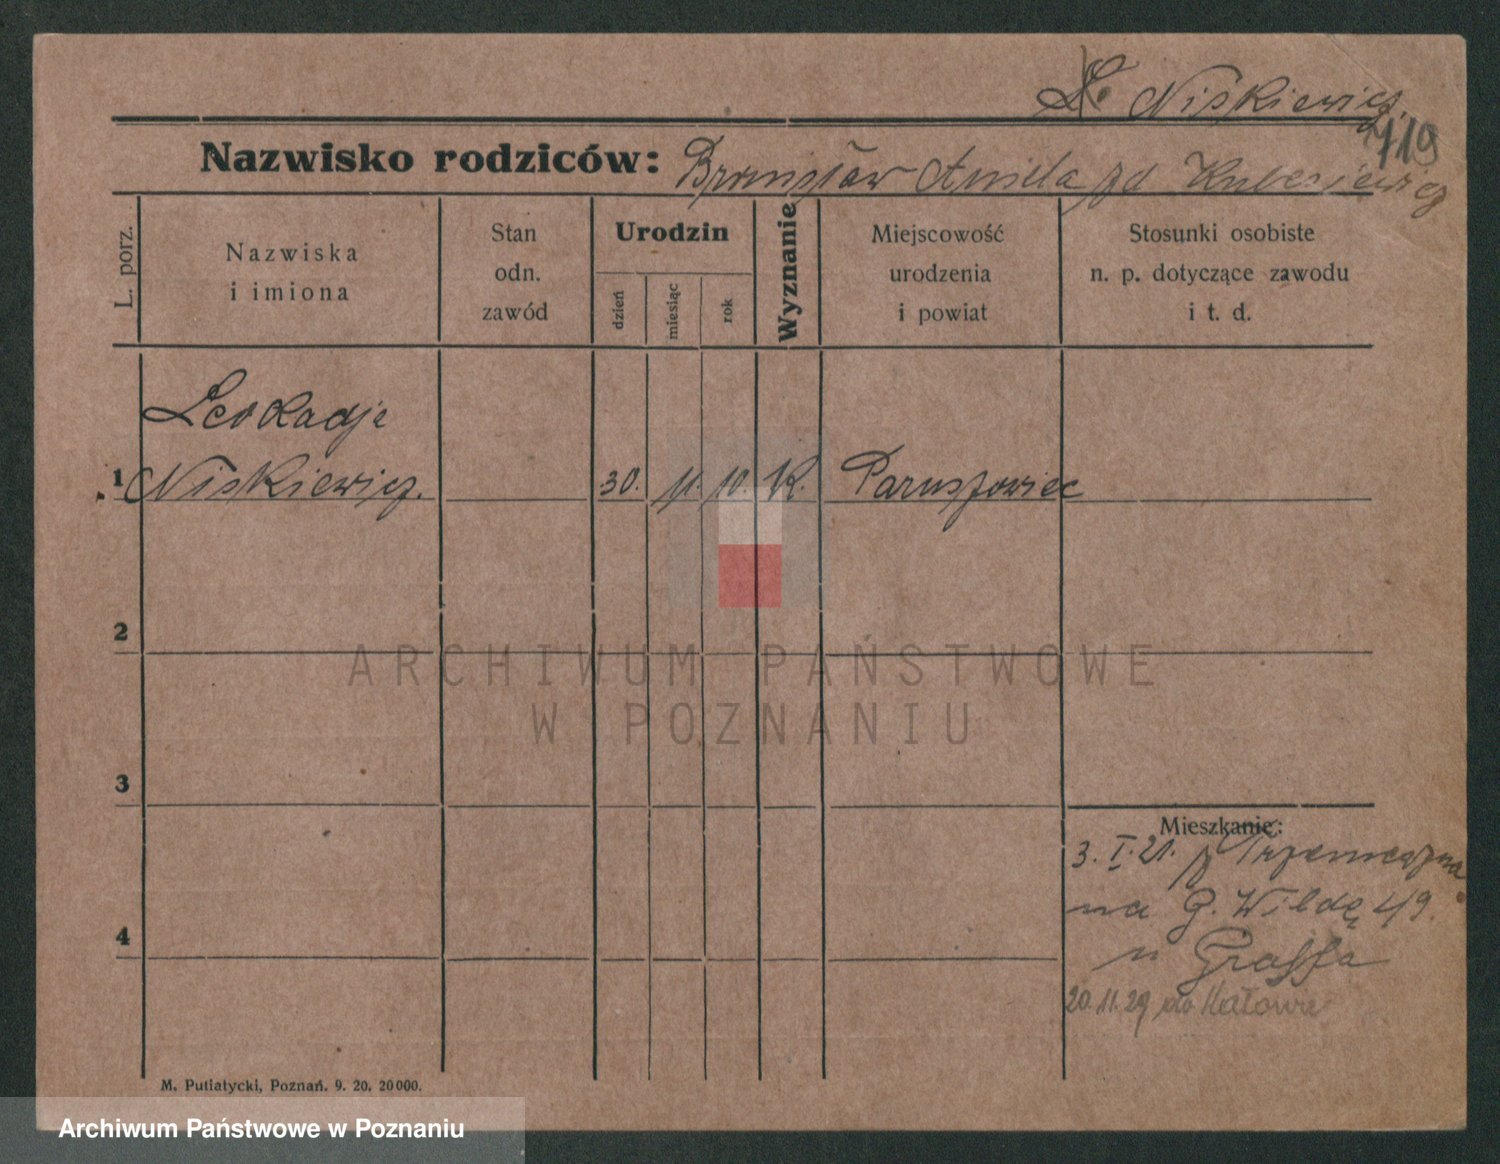 L. Niskiewicz.
719
Nazwisko rodziców: Bronisław Aniela zd Kubesiewicz
L. porz.
Nazwiska
i imiona
Stan
odn.
zawód
Urodzin
dzień
miesiąc
rok
Wyznanie
Miejscowość
urodzenia
i powiat
Stosunki osobiste
n. p. dotyczące zawodu
i t. d.
Leokadje
1 Niskiewicz. 30. 11. 10. K. Paruszowiec
2
3
4
Mieszkanie:
3. I. 21. z Trzemeszna
na G. Wildę 49.
u Graffa
20.11.29 do
M. Putiatycki, Poznań. 9. 20. 20000.
ARCHIWUM PAŃSTWOWE
W POZNANIU
Archiwum Państwowe w Poznaniu